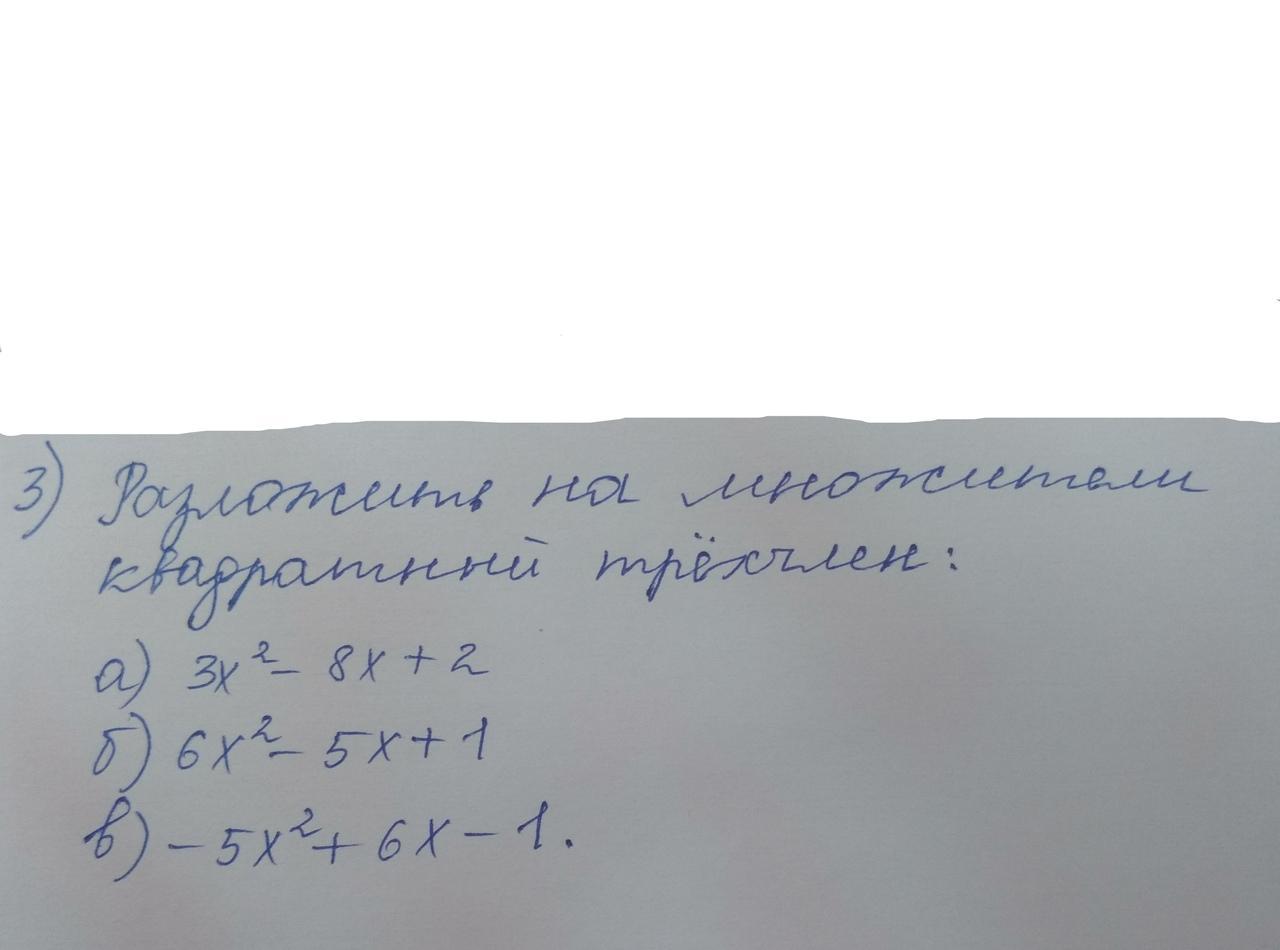 3) Разложить на множители
квадратный трёхчлен:
а) 3x² - 8x + 2
б) 6x² - 5x + 1
в) - 5x² + 6x - 1.